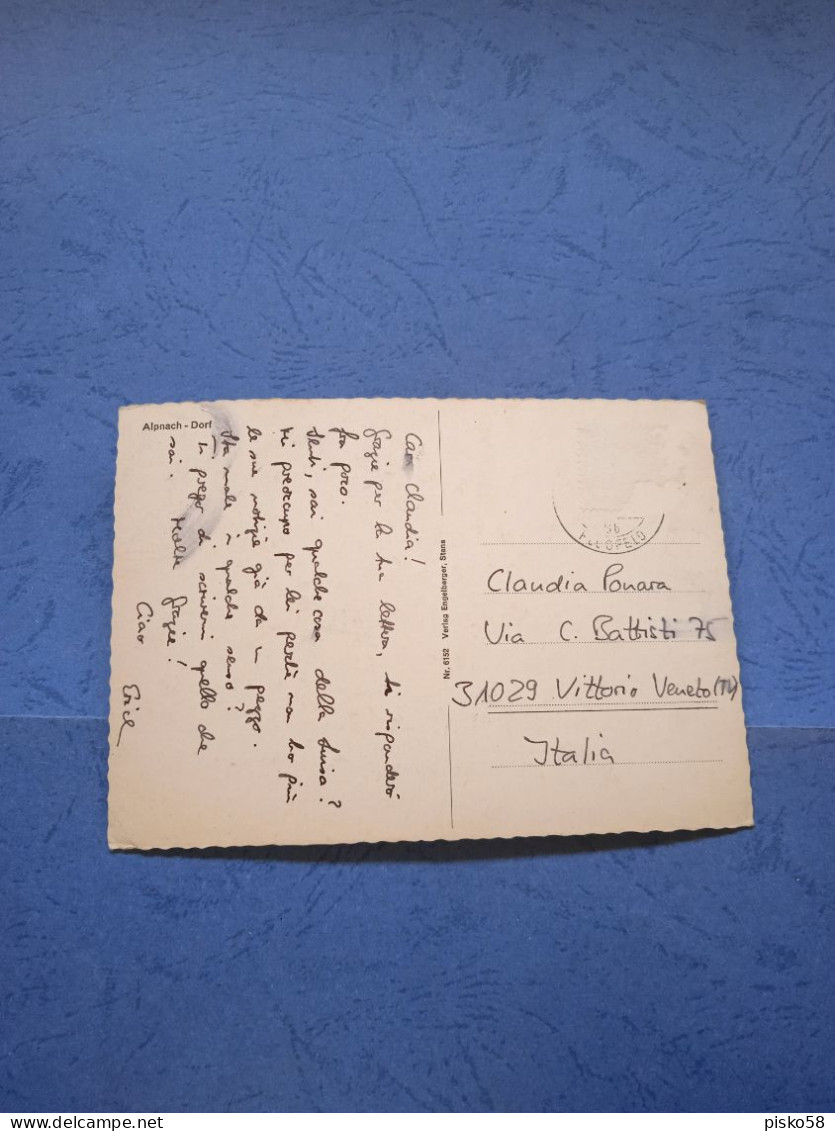 Alpnach - Dorf
Cara Claudia!
Grazie per la tua lettera, ti risponderò
fra poco.
Senti, sai qualche cosa della Luisa?
Mi preoccupo per lei perché non ho più
le sue notizie già da un pezzo.
Sta male in qualche senso?
Ti prego di scrivermi quello che
sai. Molte Grazie!
Ciao Erich
Nr. 6152 Verlag Engelberger, Stans
Claudia Ponara
Via C. Battisti 75
31029 Vittorio Veneto (TV)
Italia
delcampe.net
pisko58